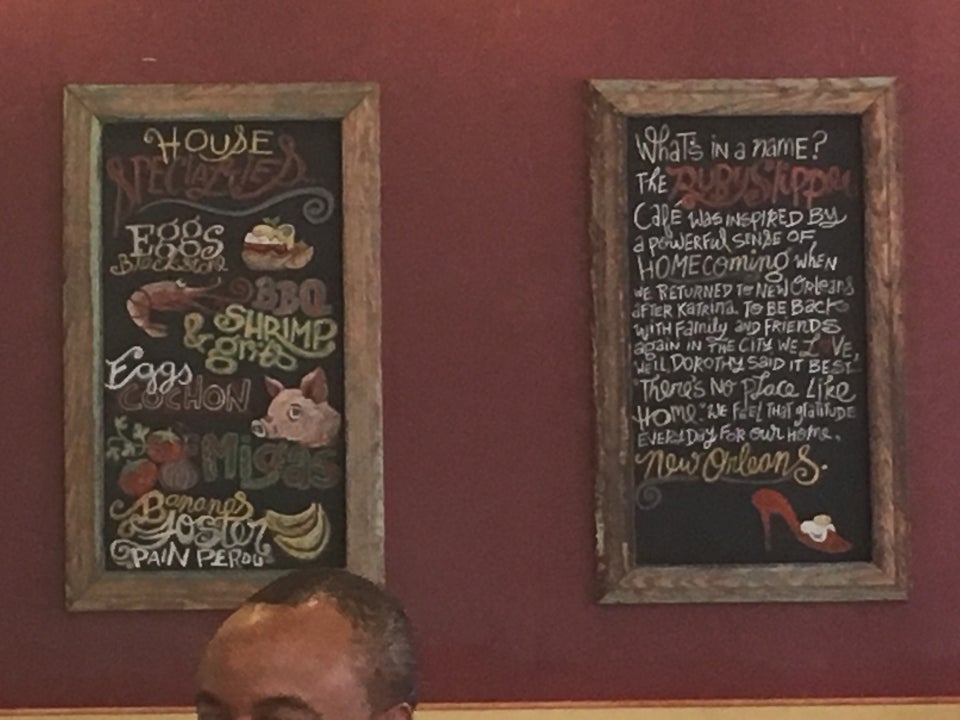 HOUSE
SPECIALTIES
Eggs
Eggs
BBQ
& SHRIMP
grits
Eggs
COCHON
Migas
Bananas
Foster
PAIN PERDU
What's in a name?
THE RUBY Slipper
Café WAS INSPIRED BY
a POWERFUL SENSE OF
HOMEComing WHEN
WE RETURNED TO NEW ORLEANS
AFTER KATRINA. TO BE Back
WITH Family AND FRIENDS
again IN THE CITY WE LOVE,
WELL DOROTHY SAID IT BEST
"THERE'S NO Place LIKE
HOME." WE FEEL THAT gRatitude
EVERY DAY FOR OUR HOME,
New Orleans.